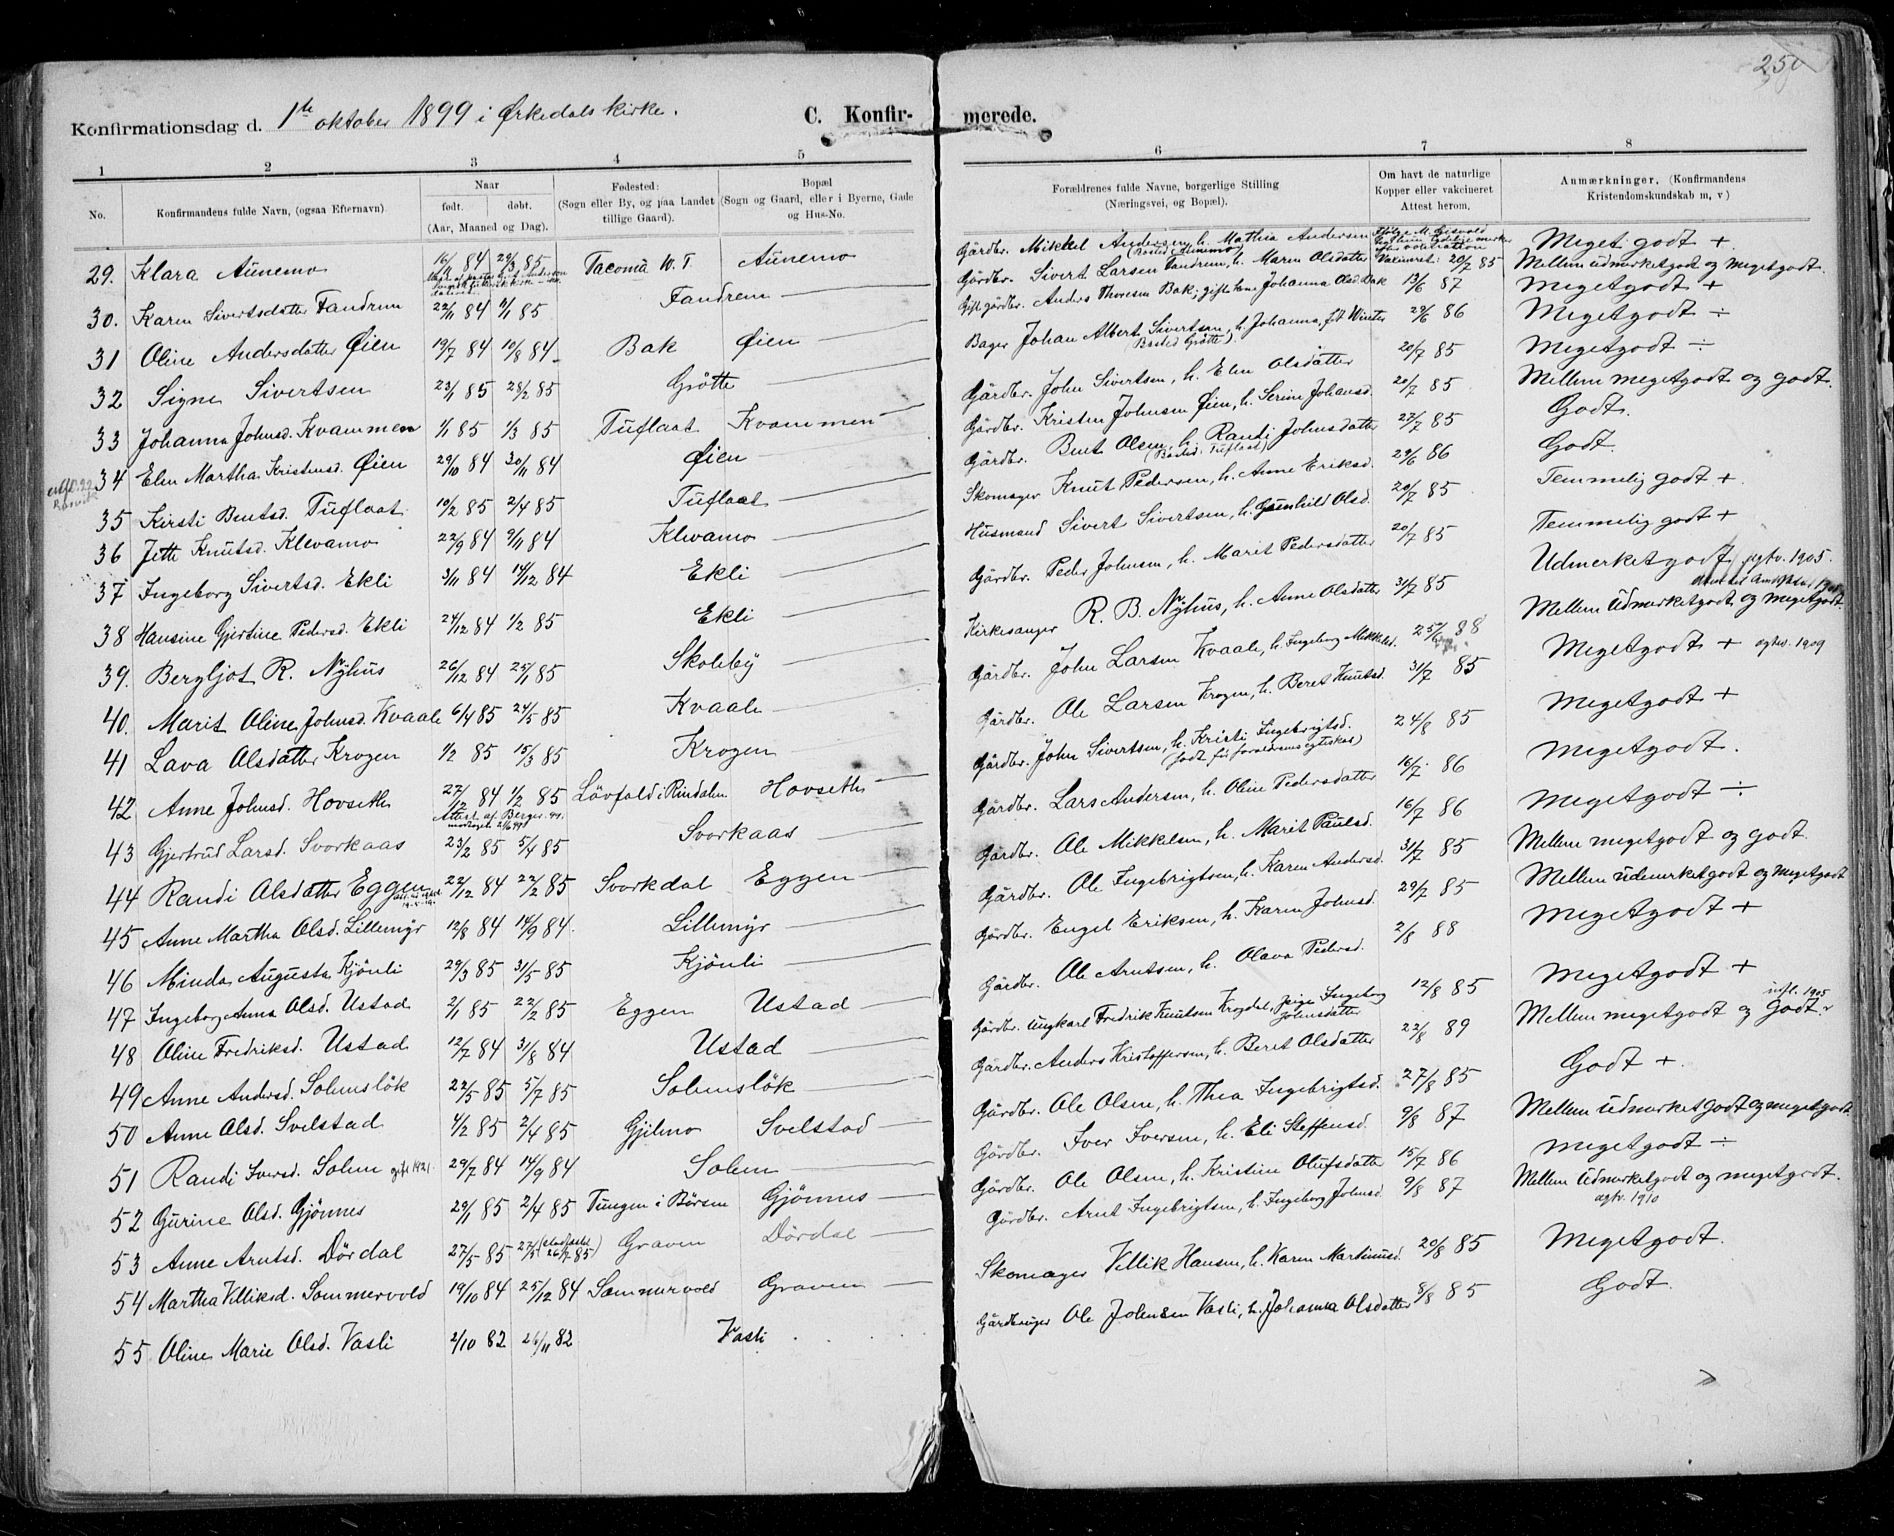 250
Konfirmationsdag d. 1ste oktober 1899 i Ørkedals kirke. C. Konfirmerede.
1 2 3 4 5 6 7 8
No. Konfirmandens fulde Navn, (ogsaa Efternavn). Naar født. døbt. (Aar, Maaned og Dag). Fødested: (Sogn eller By, og paa Landet tillige Gaard). Bopæl (Sogn og Gaard, eller i Byerne, Gade og Hus-No. Forældrenes fulde Navne, borgerlige Stilling (Næringsvei, og Bopæl). Om havt de naturlige Kopper eller vakcineret Attest herom. Anmærkninger, (Konfirmandens Kristendomskundskab m, v)
29. Klara Aunemo 16/ 84 29/3 85 Tacoma W. T. Aunemo Gårdbr. Mikkel Andersen, h. Mathia Andersen Meget godt +
30. Karen Sivertsdatter Fandrem 22/11 84 1/1 85 Fandrem Gårdbr. Sivert Larsen Fandrem, h. Maren Olsdatter Vakcineret: 20/7 85 Mellem udmerketgodt og megetgodt.
31 Oline Andersdatter Øien 19/7 84 10/8 84 Bak Øien Gift gårdbr. Anders Thoresen Bak; gifte kone Johanna Olsd. Bak 13/6 87 Megetgodt +
32 Signe Sivertsen 23/1 85 28/2 85 Grötte Bager Johan Albert Sivertsen, h. Johanna, f. Winter (Bosted Grötte). 29/6 86 Megetgodt ÷
33 Johanna Johnsd. Kvammen 1/1 85 1/3 85 Tuflaat Kvammen Gårdbr. John Sivertsen, h. Elen Olsdatter 20/7 85 Megetgodt ÷
34 Elen Martha Kristensd. Øien 29/10 84 30/11 84 Øien Gårdbr. Kristen Johnsen Øien, h. Serine Johansd. 20/7 85 Mellem megetgodt og godt.
35 Kirsti Bentsd. Tuflaat 10/2 85 2/4 85 Tuflaat Gårdbr. Bent Olsen, h. Randi Johnsdatter (Bosted: Tuflaat) 27/7 85 Godt.
36 Jette Knutsd. Klevamo 22/9 84 9/11 84 Klevamo Skomager Knut Pedersen, h. Anne Eriksd. 29/6 86 Godt.
37 Ingeborg Sivertsd. Ekli 3/11 84 14/12 84 Ekli Husmand Sivert Sivertsen, h. Gunhild Olsd. 20/7 85 Temmelig godt +
38 Hansine Gjertine Pedersd. Ekli 24/12 84 1/2 85 Ekli Gårdbr. Peder Johnsen, h. Marit Pedersdatter 20/7 85 Temmelig godt +
39. Bergljot R. Nyhus 26/12 84 25/1 85 Skoleby Kirkesanger R. B. Nyhus, h. Anne Olsdatter 31/7 85 Udmerket godt. 1905.
40. Marit Oline Johnsd. Kvaale 6/4 85 24/5 85 Kvaale Gårdbr. John Larsen Kvaale, h. Ingeborg Mikkelsd. 25/6 88 Mellem Udmerketgodt og megetgodt
41 Lava Olsdatter Krogen 1/2 85 15/3 85 Krogen Gårdbr. Ole Larsen Krogen, h. Beret Knutsd. 31/7 85 Megetgodt + 1909
42 Anne Johnsd. Hovseth 27/12 84 1/2 85 Lövfald i Rindalen Hovseth Gårdbr. John Sivertsen, h. Kristi Ingebrigtsd. (født för forældrenes egteskab) 24/8 85 Megetgodt +
43 Gjertrud Larsd. Svorkaas 23/2 85 5/4 85 Svorkaas Gårdbr. Lars Andersen, h. Oline Pedersdatter 16/7 86 Megetgodt.
44 Randi Olsdatter Eggen 27/12 84 22/2 85 Svorkdal Eggen Gårdbr. Ole Mikkelsen, h. Marit Paulsd. 16/7 86 Megetgodt ÷
45 Anne Martha Olsd. Lillemyr 12/8 84 14/9 84. Lillemyr Gårdbr. Ole Ingebrigtsen, h. Karen Andersd. 31/7 85 Mellem megetgodt og godt
46 Minda Augusta Kjönli 29/3 85 31/5 85 Kjönli Gårdbr. Engel Eriksen, h. Karen Johnsd. 29/7 85 Mellem udmerketgodt og megetgodt
47 Ingeborg Anna Olsd. Ustad 2/1 85 22/2 85 Eggen Ustad Gårdbr. Ole Arntsen, h. Olava Pedersd. 2/8 88 Megetgodt +
48 Oline Fredriksd. Ustad 12/7 84 31/8 84 Ustad Gårdbr. Ungkarl Fredrik Knutsen Krogdal, pige Ingeborg Johnsdatter 12/8 85 Megetgodt +
49 Anne Andersd. Solemslök 22/5 85 5/7 85 Solemslök Gårdbr. Anders Kristoffersen, h. Beret Olsdatter 22/8 89 Mellem megetgodt og Godt. 1905
50 Anne Olsd. Svelstad 4/2 85 2/4 85 Gjilmo Svelstad Gårdbr. Ole Olsen, h. Thea Ingebrigtsd. 27/8 85 Godt +
51 Randi Iversd. Solem 1921. 29/7 84 14/9 84 Solem Gårdbr. Iver Iversen, h. Eli Steffensd. 9/8 87 Mellem udmerketgodt og megetgodt
52 Gurine Olsd. Gjönnes 29/1 85 2/4 85 Tungen i Börsen Gjønnes Gårdbr. Ole Olsen, h. Kristine Olufsdatter 15/7 86 Megetgodt ÷
53 Anne Arntsd. Dördal 27/5 85 27/5 26/7 85 Graven Dördal Gårdbr. Arnt Ingebrigtsen, h. Ingeborg Johnsd. 9/8 87 Mellem udmerketgodt og megetgodt. 1910
54 Martha Villiksd. Sommervold 19/10 84 25/12 84 Sommervold Graven Skomager Villik Hansen, h. Karen Martinusd. 20/8 85 Megetgodt.
55 Oline Marie Olsd. Vasli 2/10 82 26/11 82 Vasli Gårdbruger Ole Johnsen Vasli, h. Johanna Olsdatter 8/8 85 Godt.